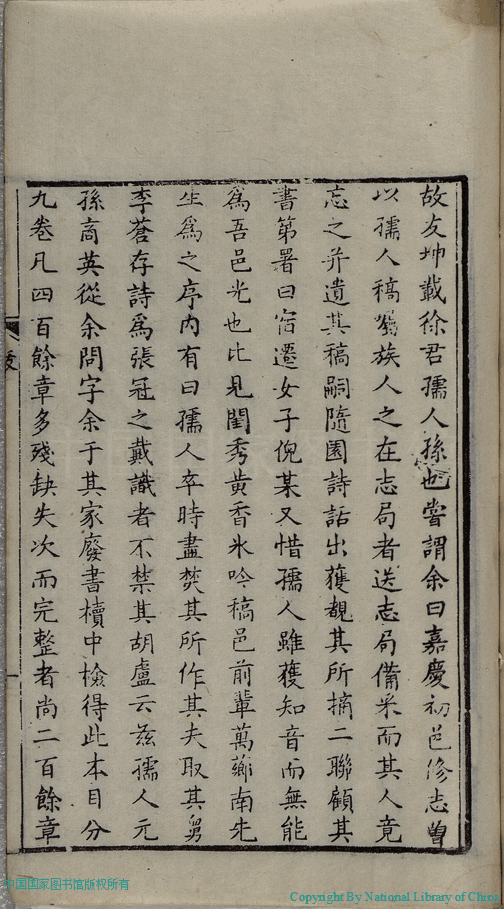 故友坤載徐君孺人孫也嘗謂余曰嘉慶初邑修志曾
以孺人稿囑族人之在志局者送志局備采而其人竟
忘之并遺其稿嗣隨園詩話出獲覩其所摘二聯顧其
書第署曰宿遷女子倪某又惜孺人雖獲知音而無能
為吾邑光也比見閨秀黃香冰吟稿邑前輩萬薌南先
生為之序內有曰孺人卒時盡焚其所作其夫取其舅
李蒼存詩為張冠之戴識者不禁其胡盧云茲孺人元
孫商英從余問字余于其家廢書櫝中檢得此本目分
九卷凡四百餘章多殘缺失次而完整者尚二百餘章
中国国家图书馆版权所有
Copyright By National Library of China